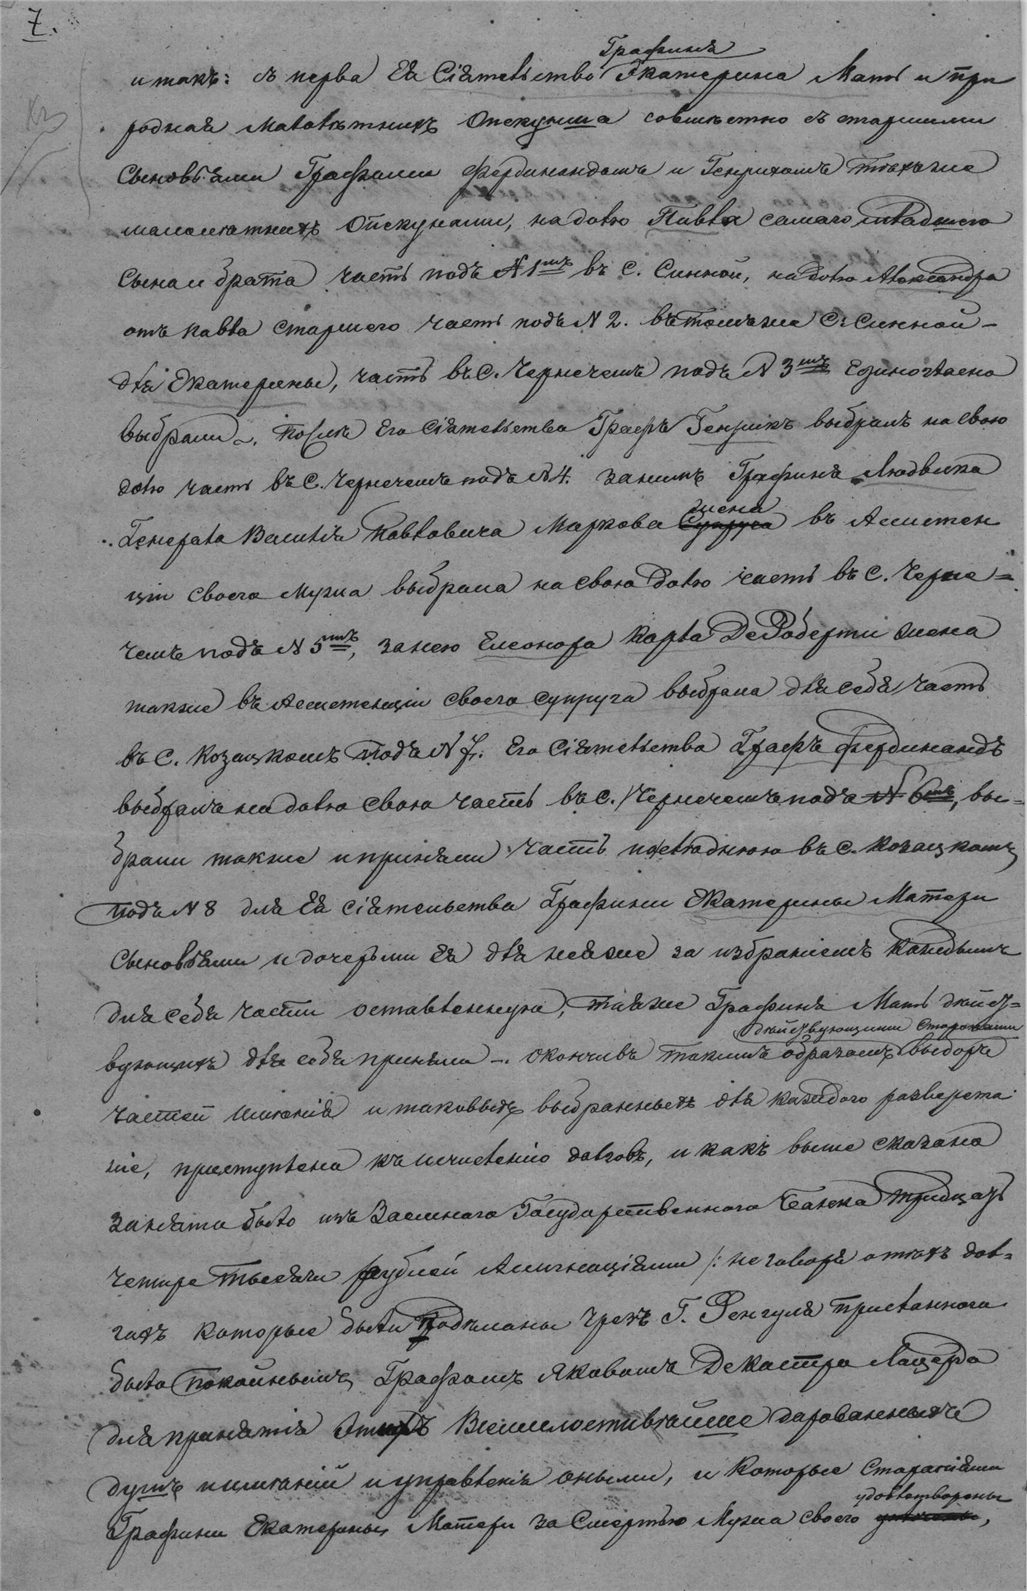 7.
Графиня
и такъ: съ перва Ея Сіятельство Екатерина Мать и при
родная малолѣтнихъ Опекунша совмѣстно съ старшими
Сыновьями Графами Фердинандомъ и Генрихомъ такъже
малолѣтнихъ Опекунами, на долю Павла самаго младшего
Сына и брата часть подъ N 1мъ въ С. Синной, на долю Александра
отъ Павла старшего часть подъ N 2. въ томъ же С. Синной –
для Екатерины, часть въ С. Чернечемъ подъ N 3мъ Единогласно
выбрали. После Его Сіятельства Графъ Генрикъ выбралъ на свою
долю часть въ С. Чернечемъ подъ N 4. за нимъ Графиня Людвика
жена
Генерала Василія Павловича Маркова Супруга въ Ассистен
ціи своего мужа выбрала на свою долю часть въ С. Черне=
чемъ подъ N 5мъ, за нею Елеонора Карла Де Роберти жена
также въ Ассистенціи своего супруга выбрала для себя часть
въ С. Козацкомъ подъ N 7. Его Сіятельства Графъ Фердинандъ
выбралъ на долю свою часть въ С. Чернечемъ подъ N 6мъ, вы=
брали также и приняли часть последнюю въ С. Козацкомъ
подъ N 8 для Ея Сіятельства Графини Екатерины Матери
Сыновьями и дочерьми Ея для нея же за избраніемъ Каждымъ
для себя части оставленную, таяже Графиня Мать дѣйст=
дѣйствующими Сторонами
вующихъ для себя приняла –. окончивъ такимъ образомъ выборъ
частей Имѣнія и таковыхъ выбранныхъ для каждого разверста
ніе, приступлено къ исчисленію долговъ, и какъ выше сказано
занято было изъ Заемного Государственного Банка тридцать
четыре тысячи рублей Ассигнаціями /: не говоря о тѣхъ дол=
гахъ которые были Подѣланы чрезъ Г. Ренгуля присланного
было покойнымъ Графомъ Яковомъ Декастро Лацерда
для принятія Этихъ Всемилостивѣйше дарованныхъ
душъ имѣній и управленія оными, и которые Стараніями
удовлетворены
Графини Екатерины Матери за Смертью Мужа своего,